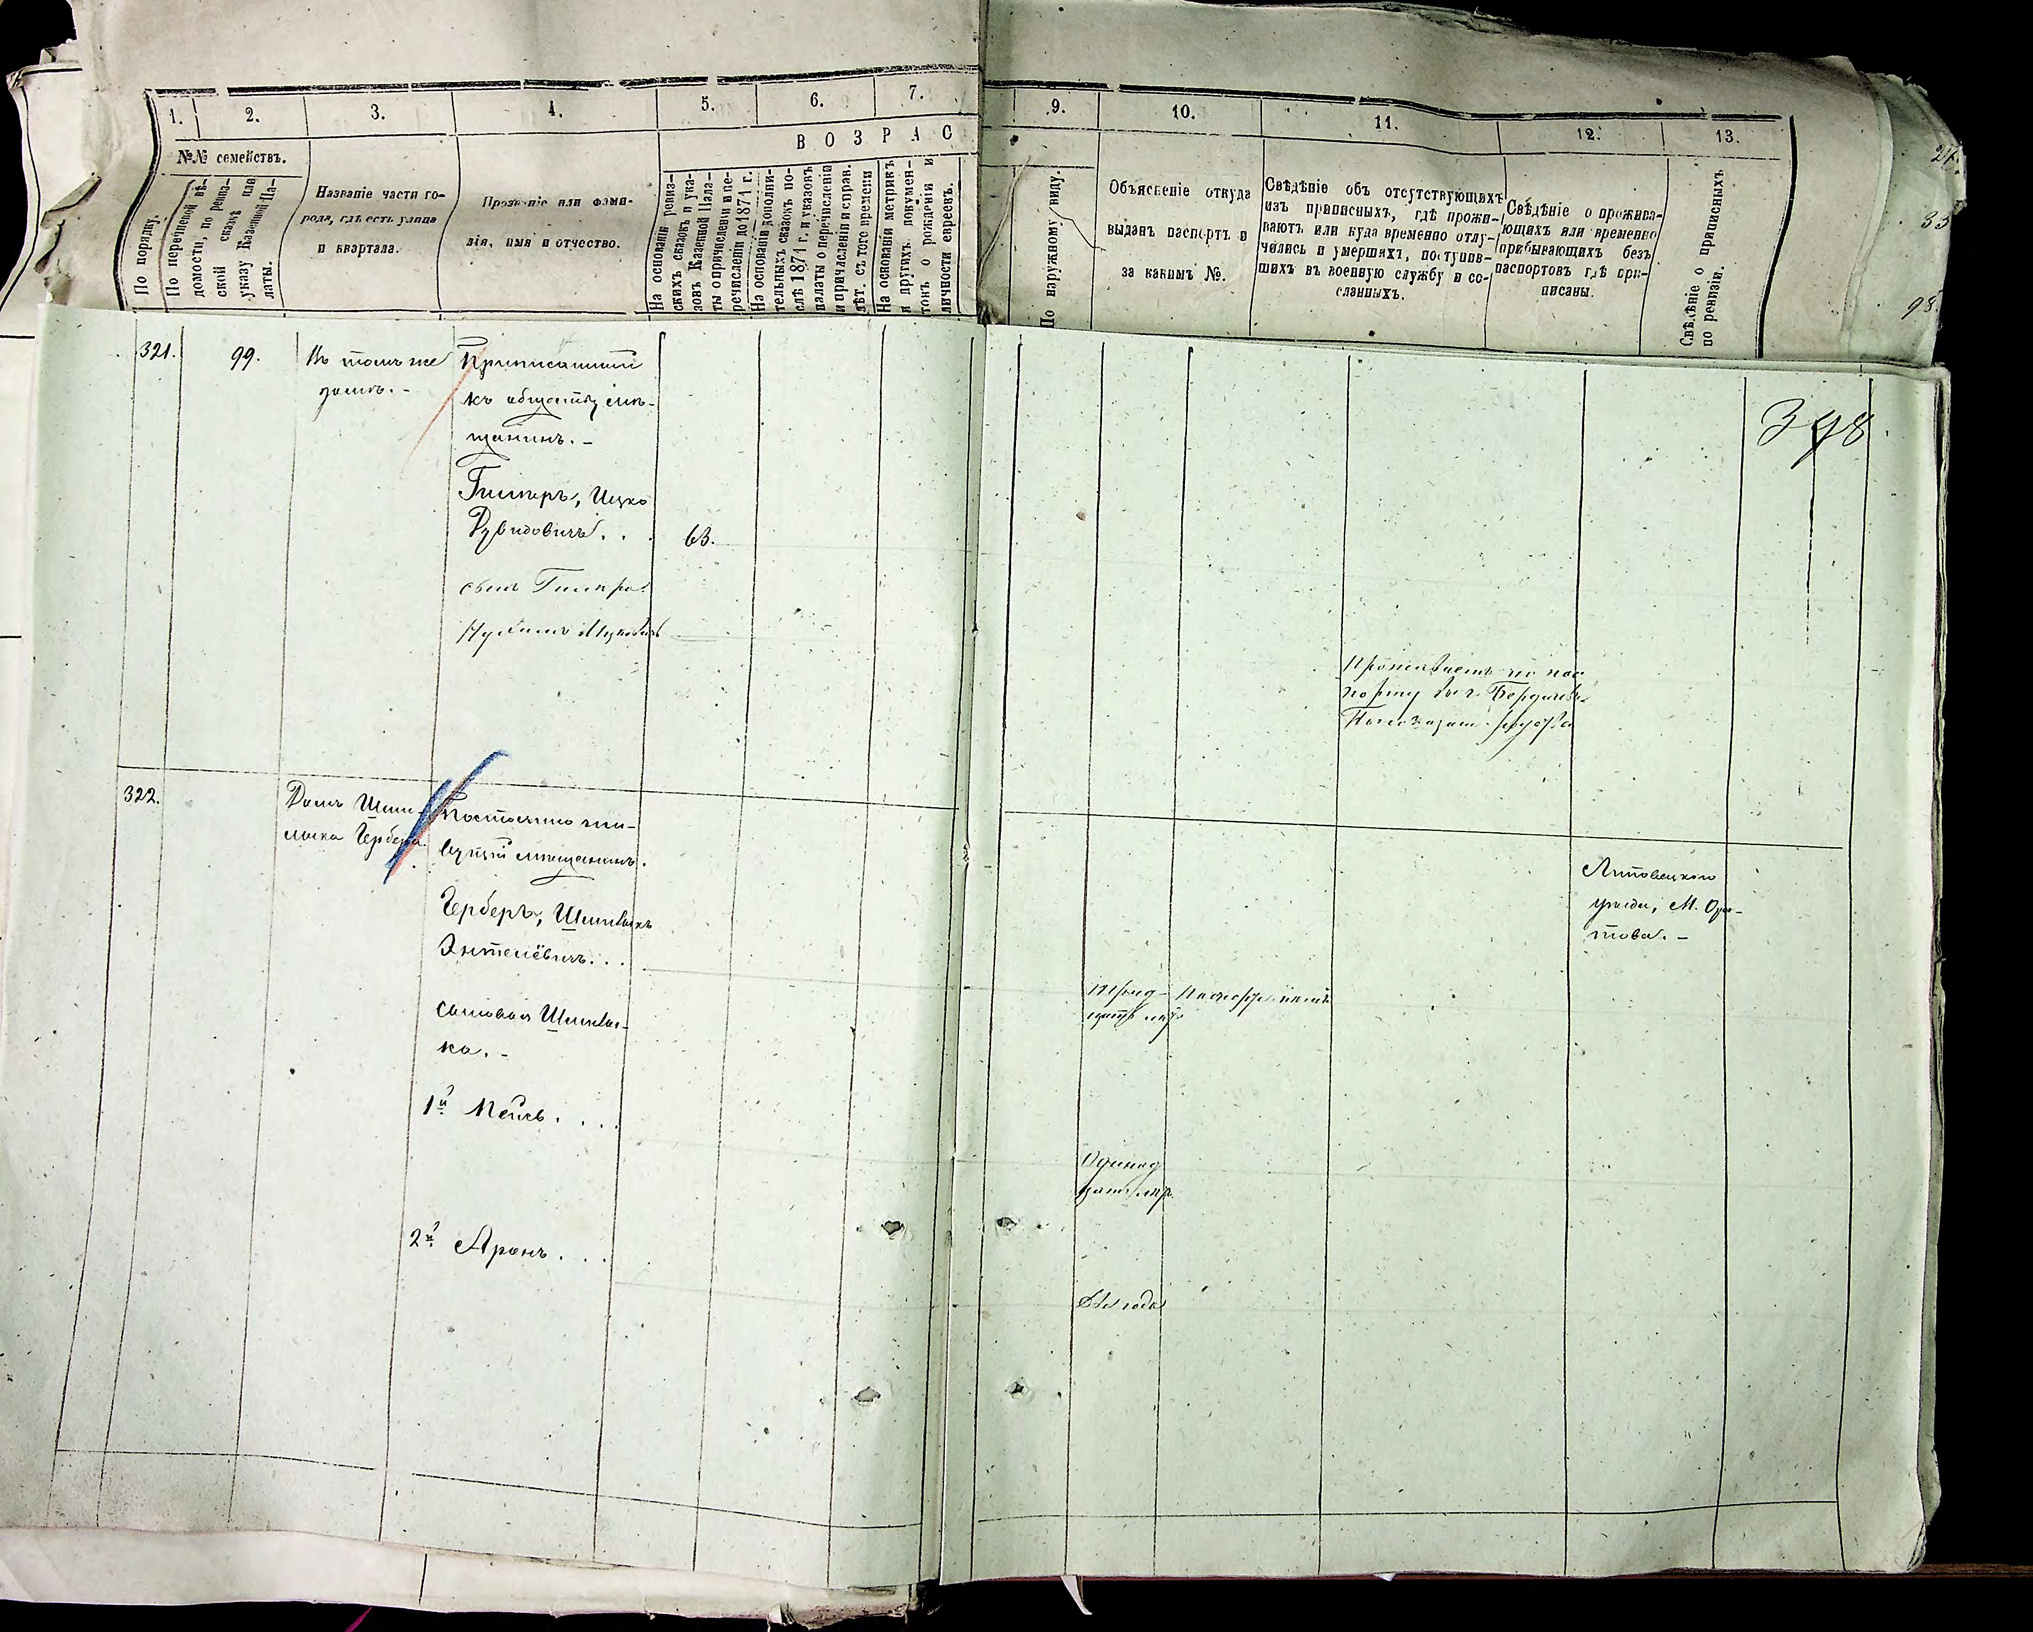 1.
2.
3.
4.
5.
6.
7.
9.
10.
11.
12.
13.
ВОЗРАС
№№ семействъ.
По порядку.
По перечневой вѣ-
домости, по ревиз-
ской сказкѣ или
указу Казенной Па-
латы.
Названіе части го-
рода, гдѣ есть улица
и квартала.
Прозваніе или фами-
лія, имя и отчество.
На основаніи ревиз-
скихъ сказокъ и ука-
зовъ Казенной Пала-
ты о причисленіи и пе-
речисленіи до 1871 г.
На основаніи дополни-
тельныхъ сказокъ по-
слѣ 1871 г. и указовъ
палаты о перечисленіи
и причисленіи и справ.
лѣт. съ того времени
На основаніи метрикъ
и другихъ докумен-
товъ о рожденіи и
личности евреевъ.
По наружному виду.
Объясненіе откуда
выданъ паспортъ и
за какимъ №.
Свѣдѣніе объ отсутствующихъ
изъ приписныхъ, гдѣ прожи-
ваютъ или куда временно отлу-
чились и умершихъ, поступив-
шихъ въ военную службу и со-
сланныхъ.
Свѣдѣніе о прожива-
ющихъ или временно
прибывающихъ безъ
паспортовъ гдѣ при-
писаны.
Свѣдѣніе о приписныхъ
по ревизіи.
98.
398
321.
99.
Въ томъ же
домѣ. -
Приписанный
къ обществу мѣ-
щанинъ. -
Ицко
Дувидовичъ . . .
63.
сынъ
Проживаетъ по пас
порту въ г. Бердичевѣ
322.
Домъ Шми-
лыка Гербера.
Постоянно жи-
вущій мѣщанинъ.
Герберъ, Шмилыкъ
. . .
сыновья Шмилы-
ка. -
1й Пейсъ . . . .
2й Аронъ . . .
Трид-
цать лѣтъ
Одинад
цать лѣтъ
Два года
Липовецкого
уѣзда, М. Ора-
това. -